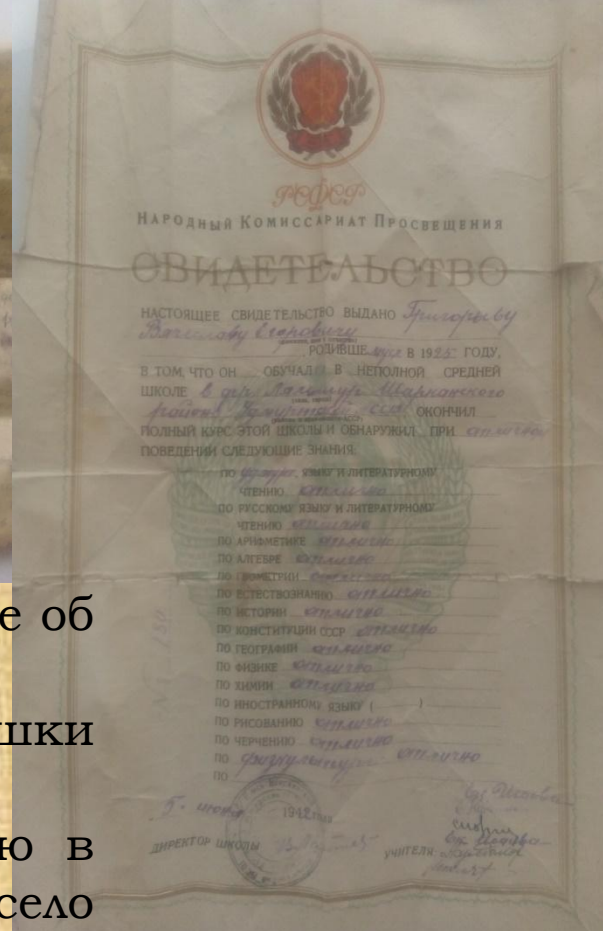 РСФСР
НАРОДНЫЙ КОМИССАРИАТ ПРОСВЕЩЕНИЯ
СВИДЕТЕЛЬСТВО
НАСТОЯЩЕЕ СВИДЕТЕЛЬСТВО ВЫДАНО Григорьеву
Егоровичу
РОДИВШЕ муся В 1925 ГОДУ,
В ТОМ, ЧТО ОН ОБУЧАЛ В НЕПОЛНОЙ СРЕДНЕЙ
ШКОЛЕ в дер. Шарканского
района Удмуртской АССР ОКОНЧИЛ
ПОЛНЫЙ КУРС ЭТОЙ ШКОЛЫ И ОБНАРУЖИЛ ПРИ отлично
ПОВЕДЕНИИ СЛЕДУЮЩИЕ ЗНАНИЯ:
ПО удмурт. ЯЗЫКУ И ЛИТЕРАТУРНОМУ
ЧТЕНИЮ отлично
ПО РУССКОМУ ЯЗЫКУ И ЛИТЕРАТУРНОМУ
ЧТЕНИЮ отлично
ПО АРИФМЕТИКЕ отлично
ПО АЛГЕБРЕ отлично
ПО ГЕОМЕТРИИ отлично
ПО ЕСТЕСТВОЗНАНИЮ отлично
ПО ИСТОРИИ отлично
ПО КОНСТИТУЦИИ СССР отлично
ПО ГЕОГРАФИИ отлично
ПО ФИЗИКЕ отлично
ПО ХИМИИ отлично
ПО ИНОСТРАННОМУ ЯЗЫКУ ( )
ПО РИСОВАНИЮ отлично
ПО ЧЕРЧЕНИЮ отлично
ПО физкультуре отлично
ПО
5 1942 года
ДИРЕКТОР ШКОЛЫ
УЧИТЕЛЯ
е об
шки
ю в
село